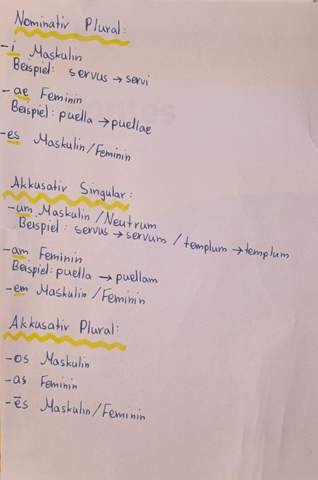 Nominativ Plural:
-i Maskulin
Beispiel: servus → servi
-ae Feminin
Beispiel: puella → puellae
-es Maskulin/Feminin
Akkusativ Singular:
-um Maskulin/Neutrum
Beispiel: servus → servum / templum → templum
-am Feminin
Beispiel: puella → puellam
-em Maskulin/Feminin
Akkusativ Plural:
-os Maskulin
-as Feminin
-ēs Maskulin/Feminin